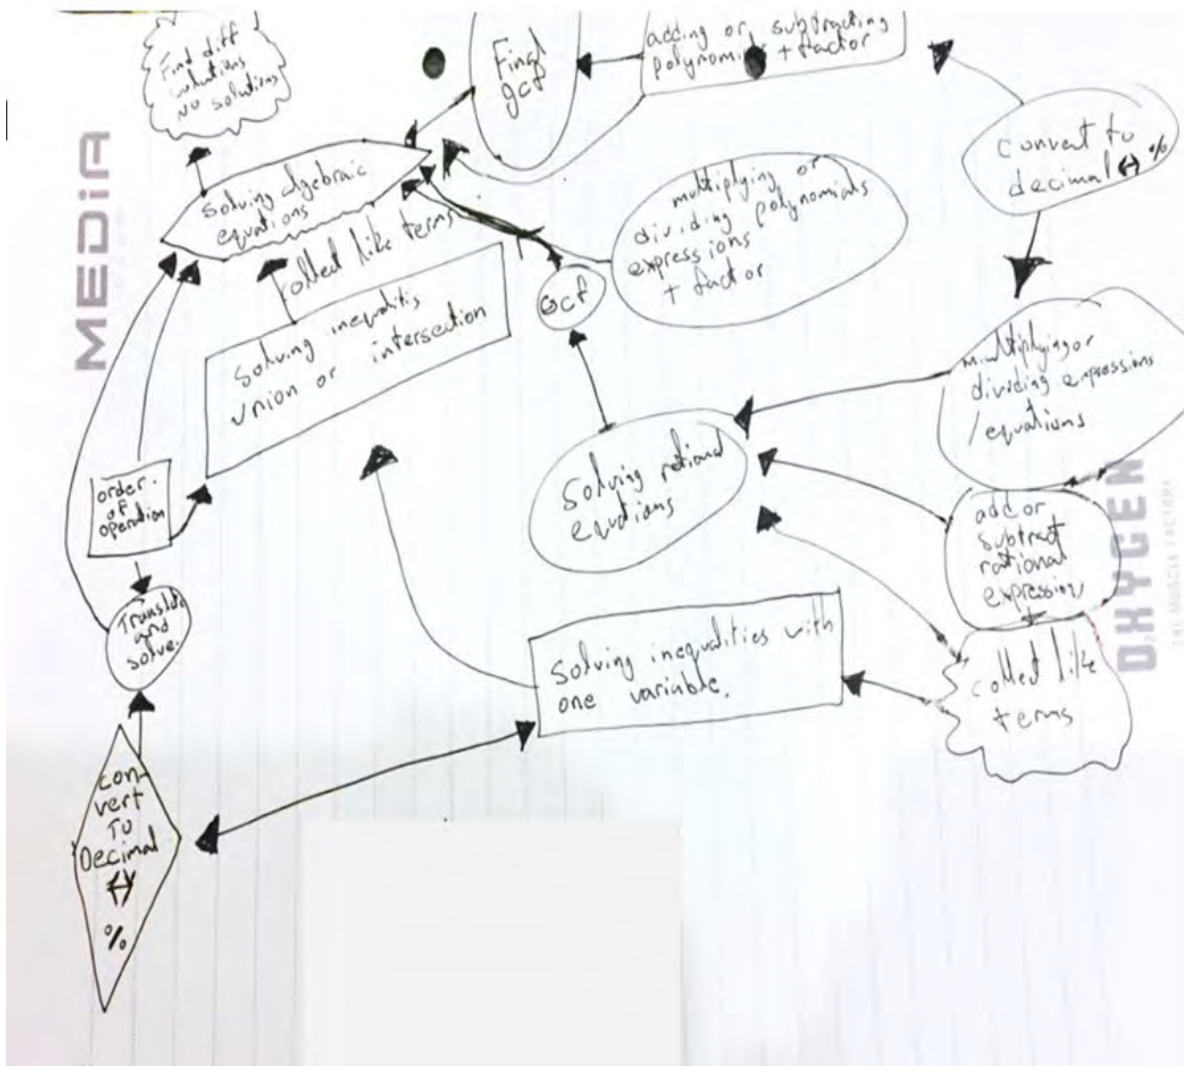 Find diff
solutions
No solutions
Find
gcf
adding or subtracting
polynomials + factor
convert to
decimal ↔ %
MEDiA
solving algebraic
equations
collect like terms
multiplying or
dividing polynomials
expressions
+ factor
Gcf
solving inequalitis
union or intersection
multiplying or
dividing expressions
/equations
Solving rational
equations
order.
of
operation
add or
subtract
rational
expressions
OXYGEN
THE MUSCLE FACTORY
Translate
and
solve.
Solving inequalities with
one variable.
collect like
terms
con-
vert
To
Decimal
↔
%